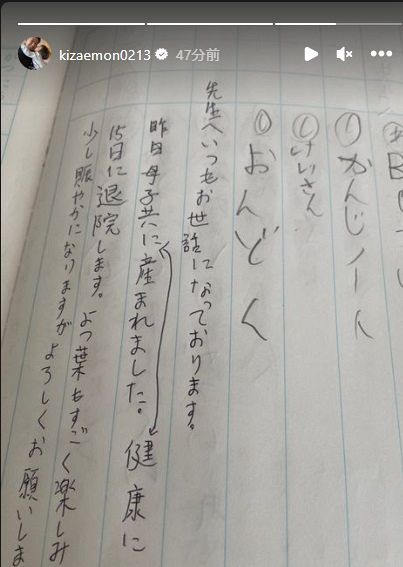 kizaemon0213 47分前
かんじノート
けいさん
おんどく
先生へいつもお世話になっております。
昨日母子共に産まれました。健康に
15日に退院します。よつ葉もすごく楽しみ
少し賑やかになりますがよろしくお願いしま